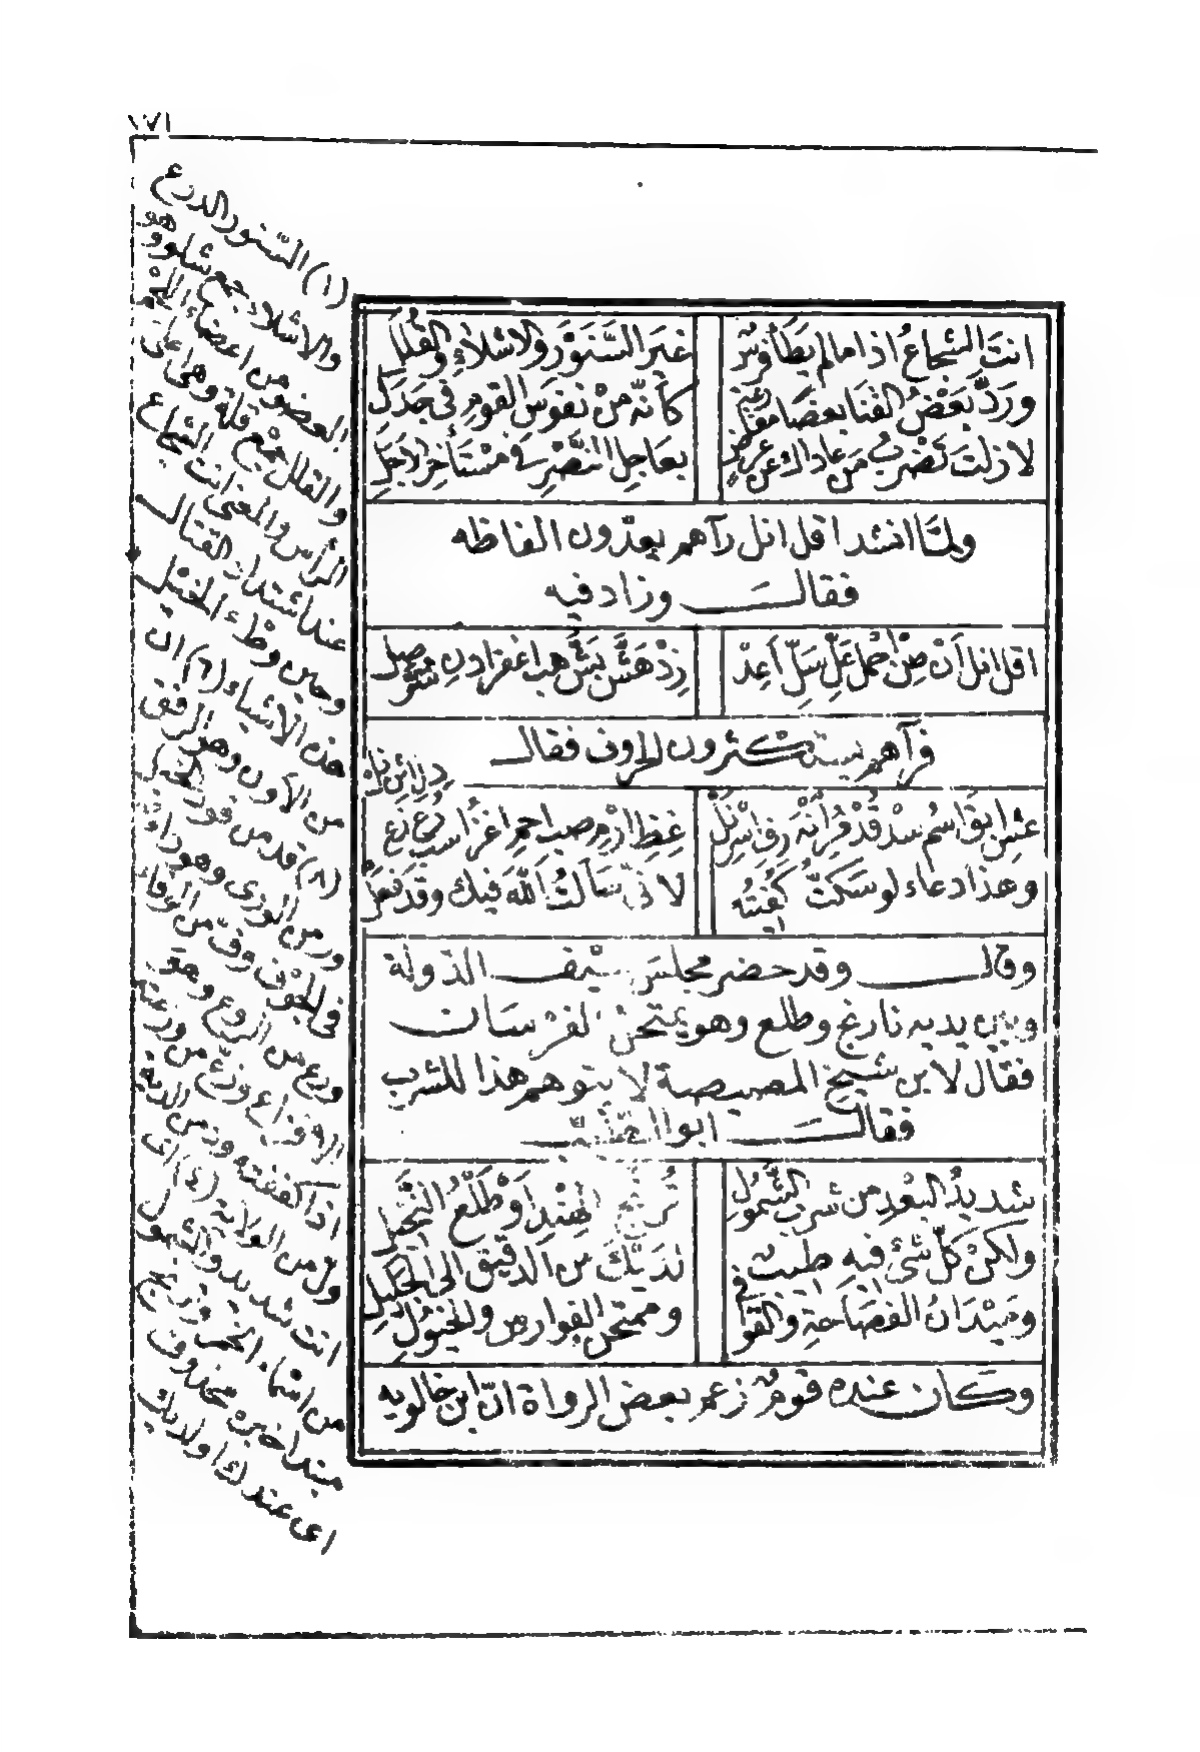 ١٧١
انتَ الشجاعُ اذا مالم يَطَأ فرسٌ غيرَ السَّنَوَّر والاشلاءِ والقُلَلِ
ورَدَّ بَعْضُ القنا بعضا مقارعةً كأنّه منْ نفوسِ القومِ فى جَدَلِ
لا زلتَ تضربُ مَن عاداك عن عرضٍ بعاجلِ النَّصْرِ فى مُسْتأخِرِ الاَجَلِ
ولمَّا انشد اقل انل رآهم يعدّون الفاظه
فقالـــ وزاد فيه
اقل انل اَنْ صُنْ احمل عَلِّ سَلِّ اَعِدْ زِدْ هَشَّ بَشَّ هب اغفر ادنِ سُرَّ صِلِ
فرآهم يستكثرون الحروف فقالـــ
عِشِ ابْقَ اسْمُ سُدْ قُدْ جُدْ مُرِ انْهَ رِفِ اسْرِ نَلْ غِظِ ارْمِ صِب احْمِ اغْزُ اسْبِ رُعْ زَعْ
دِ لِ اثْنِ نلْ
وهذا دعاء لو سَكَتُّ كُفِيتَه لانّى سَأَلْتُ اللّٰهَ فيك وقد فَعَلْ
وقالـــ وقد حضر مجلس سيف الدّولة
وبين يديه نارنج وطلع وهو يمتحن الفرسان
فقال لابن شيخ المصيصة لا يتوهم هذا للشرب
فقالـــ ابو الطيّب
شديدُ البُعْدِ من شرب الشَّمولِ تُرُنْجُ الهِنْدِ اَوْ طَلْعُ النَّخيلِ
ولكنْ كلّ شئ فيهِ طيبٌ لديكَ من الدقيق الى الجليلِ
ومَيْدَانُ الفَصَاحَةِ والقَوافى وممتحن الفوارس والخيولِ
وكان عنده قومٌ زعم بعض الرواة انّ ابن خالويه
(١) السّنور الدرع
والاشلاء جمع شلو وهو
العضو من اعضاء اللحم
والقلل جمع قلة وهى اعلى
الرأس والمعنى انت الشجاع
عند اشتداد القتالـــ
وحين وطء الخيل
هذه الاشياء (٢) ان
من الأون وهو الرفق
(٣) قد من قود الخيل
ور من الورى وهو داء
فى الجوف وفّ من الوفاء
ورع من الروع وهو
وزع من وزعته
اذا كففته ود من الدية
ول من الولاية (٤) اى
انت شديد والشمول
من اسماء الخمر وترنج
مبتدا خبره محذوف
اى عندك او لديك